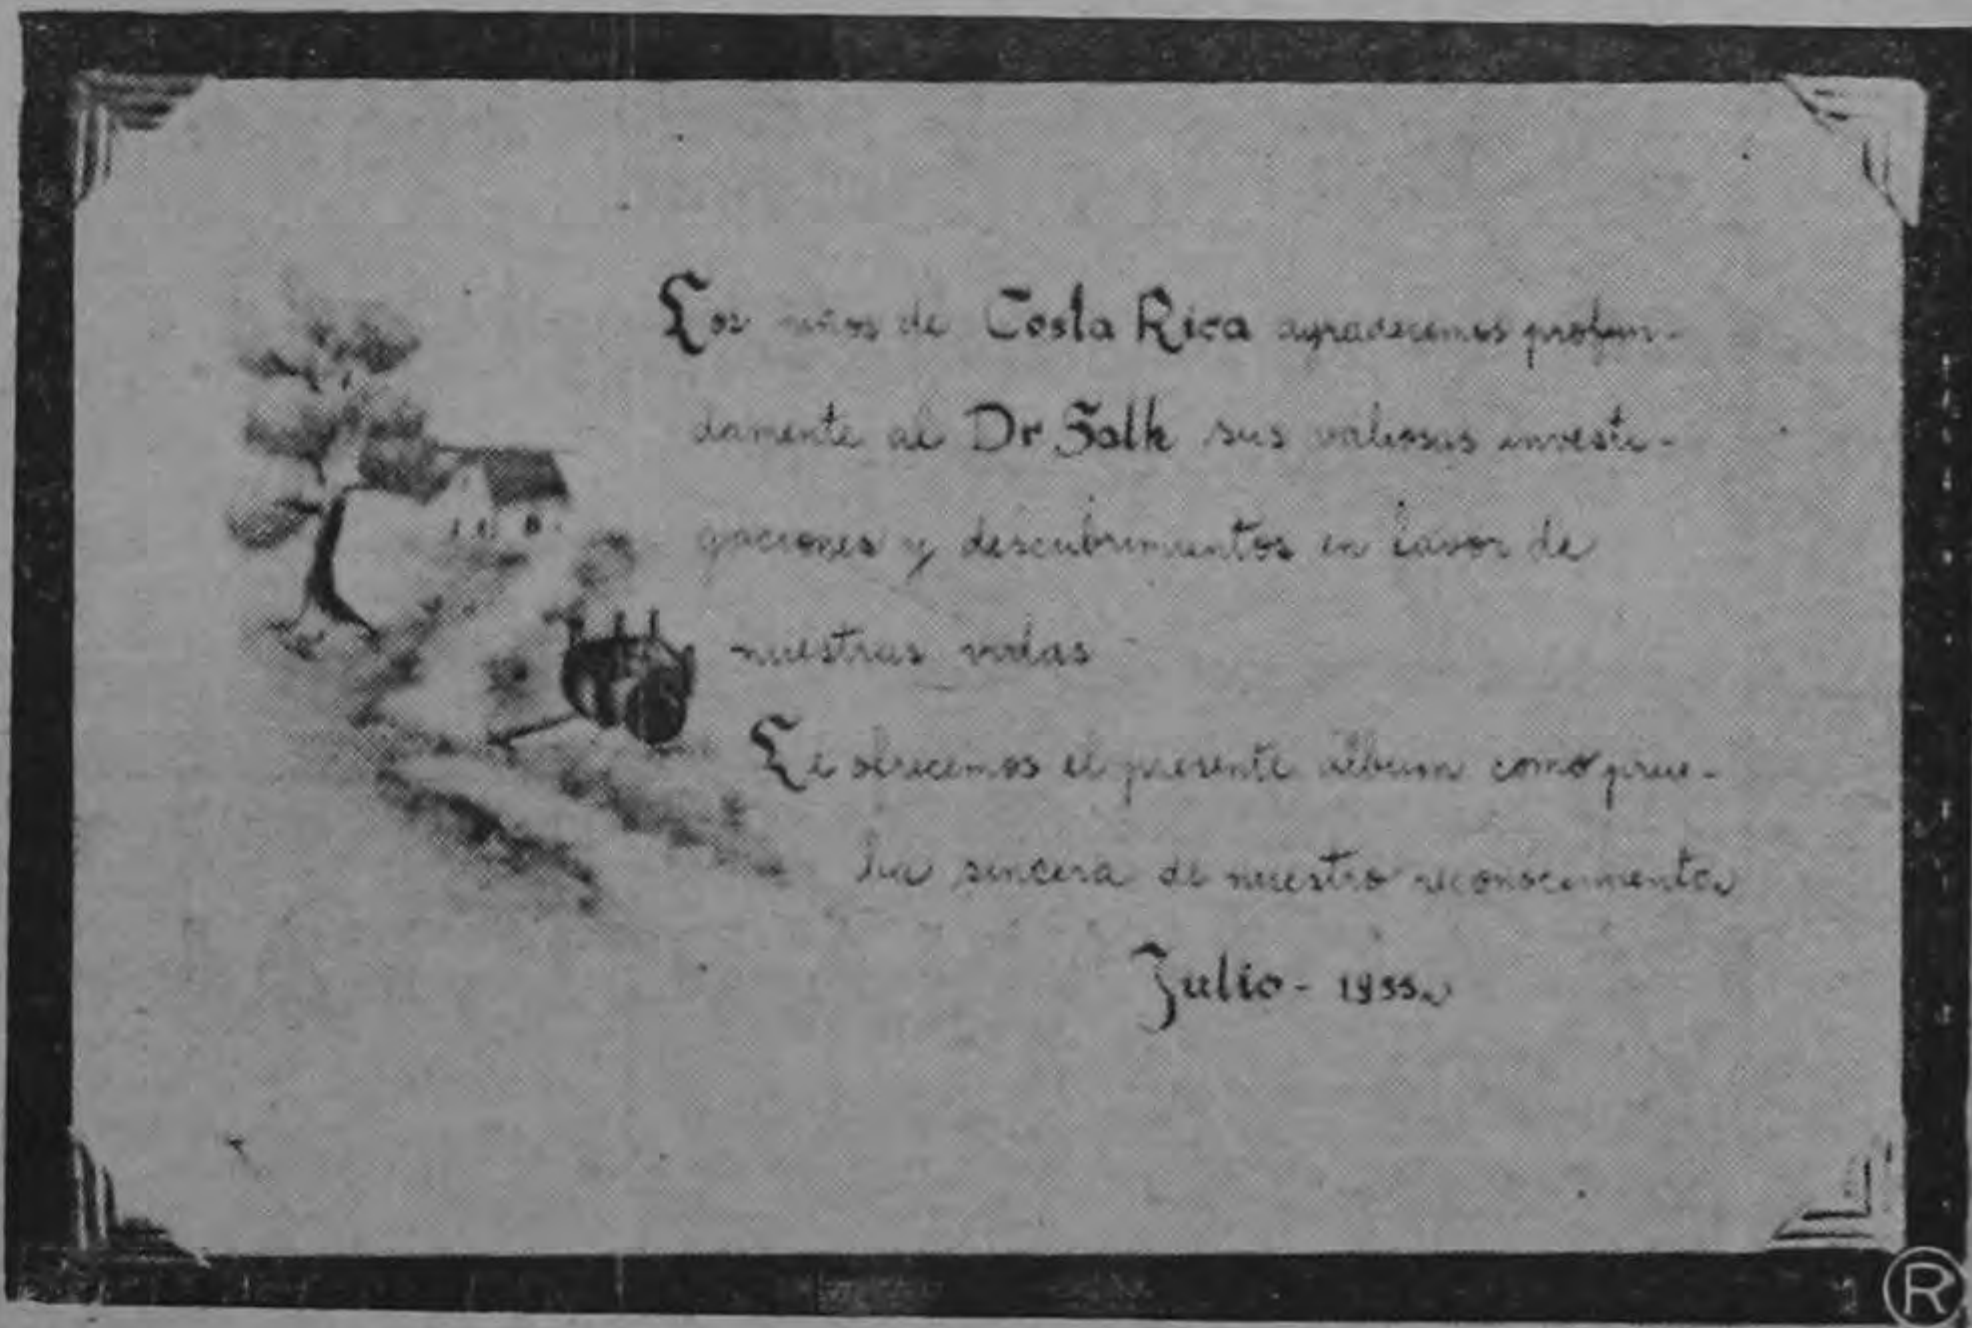 Los niños de Costa Rica agradecemos profun-
damente al Dr Salk sus valiosas investi-
gaciones y descubrimientos en favor de
nuestras vidas
Le ofrecemos el presente álbum como prue-
ba sincera de nuestro reconocimiento
Julio - 1955.
R